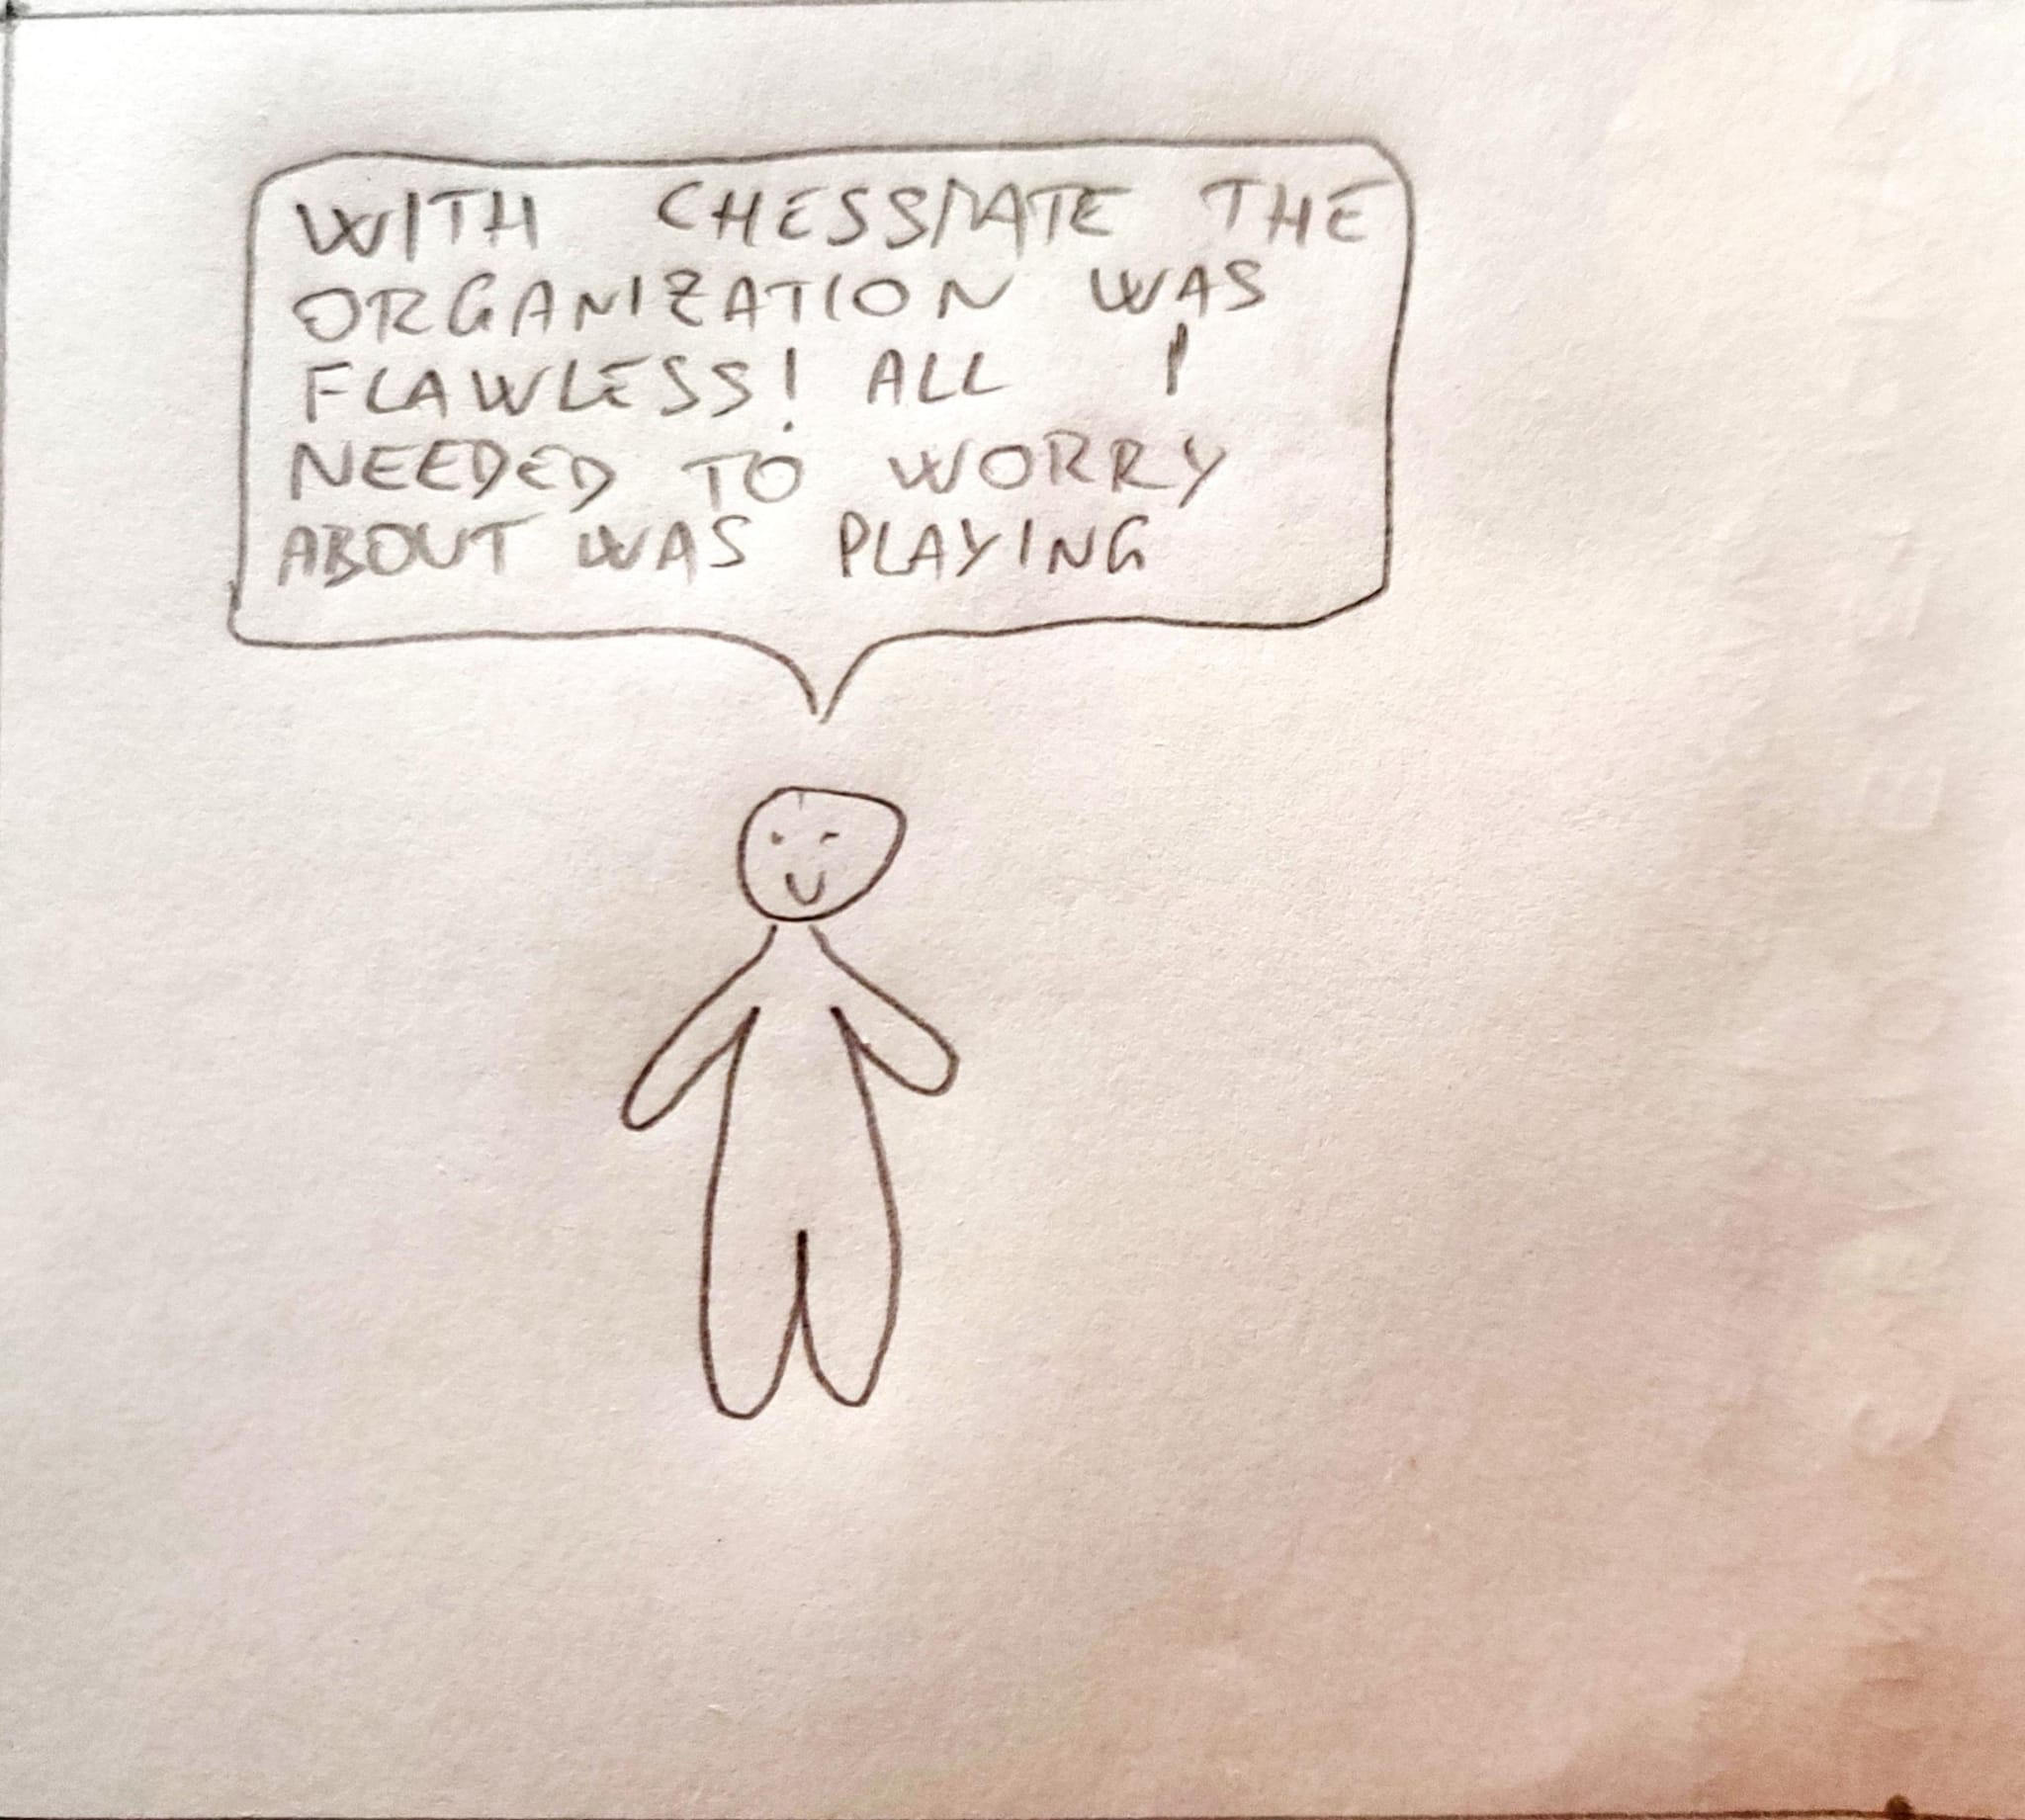 WITH CHESSMATE THE
ORGANIZATION WAS
FLAWLESS! ALL I
NEEDED TO WORRY
ABOUT WAS PLAYING